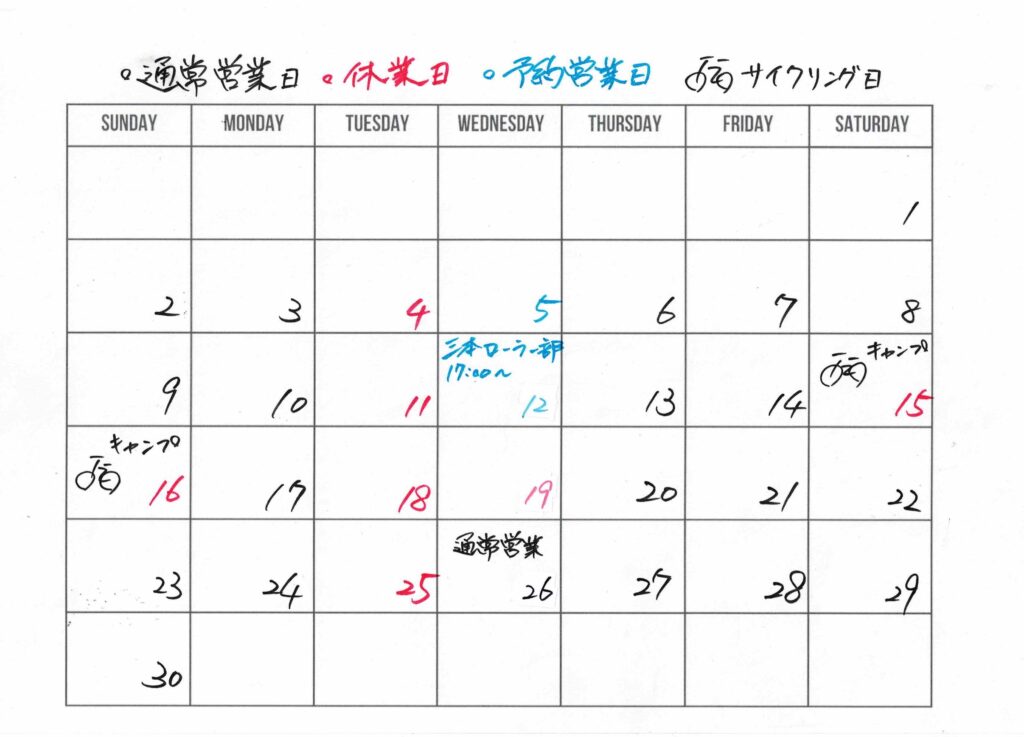 ○通常営業日 ○休業日 ○予約営業日 サイクリング日
SUNDAY MONDAY TUESDAY WEDNESDAY THURSDAY FRIDAY SATURDAY
1
2 3 4 5 6 7 8
三本ローラー部 キャンプ
17:00〜
9 10 11 12 13 14 15
キャンプ
16 17 18 19 20 21 22
通常営業
23 24 25 26 27 28 29
30